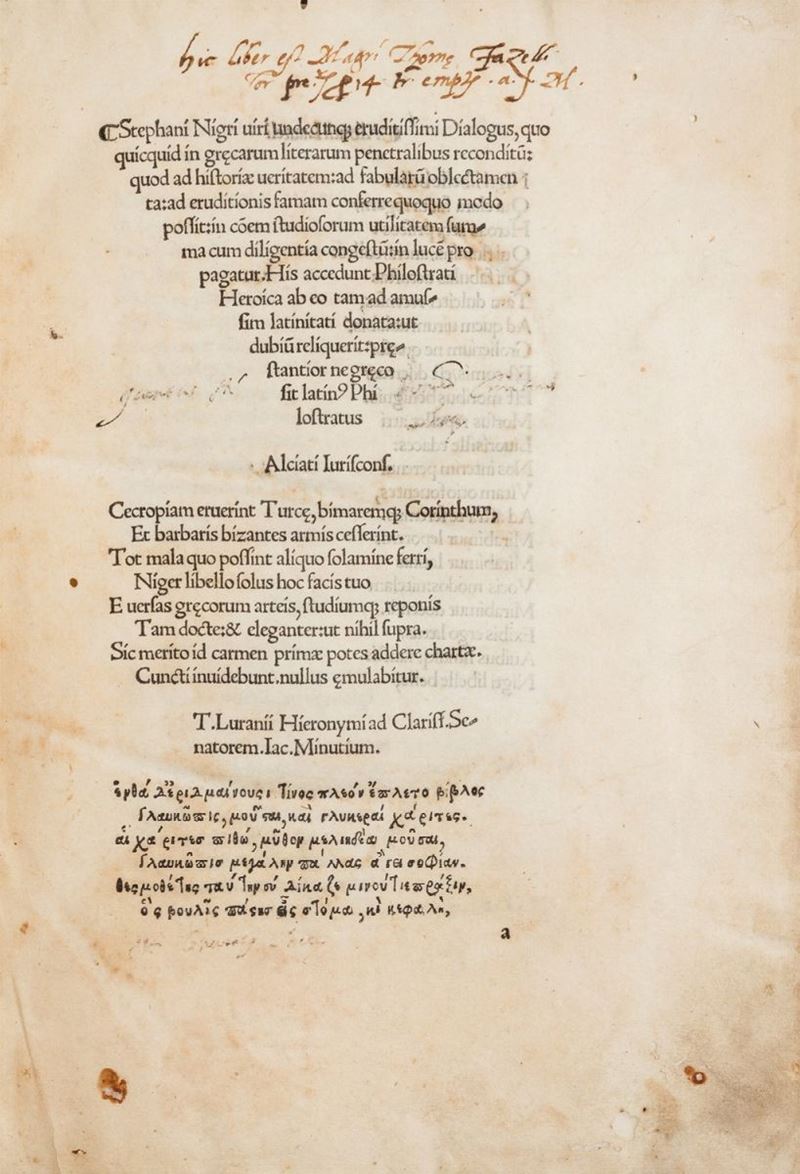 hic liber est Magri Thome Fazelli
⸿Stephani Nigri uiri undecunq; eruditissimi Dialogus, quo
quicquid in gręcarum literarum penetralibus reconditū:
quod ad historiæ ueritatem:ad fabularū oblectamen
ta:ad eruditionis famam conferre quoquo modo
possit:in cōem studiosorum utilitatem sum-
ma cum diligentia congestū:in lucē pro
pagatur.His accedunt Philostrati
Heroica ab eo tam ad amus-
sim latinitati donata:ut
dubiū reliquerit:prę-
stantior ne gręco
sit latin⁹ Phi
lostratus
Alciati Iurisconf.
Cecropiam eruerint Turcę, bimaremq; Corinthum,
Et barbaris bizantes armis cesserint.
Tot mala quo possint aliquo solamine ferri,
Niger libello solus hoc facis tuo
E uersas gręcorum arteis, studiumq; reponis
Tam docte:& eleganter:ut nihil supra.
Sic merito id carmen primæ potes addere chartæ.
Cuncti inuidebunt.nullus ęmulabitur.
T.Luranii Hieronymi ad Clariss.Se-
natorem.Iac.Minutium.
τίνος πλέον ἔπλετο βίβλος
Γλαυκῶπις, μοῦσαι, καὶ γλυκεραί χάριτες.
αἱ χάριτες πιθὼ, μῦθον μελιηδέα μοῦσαι,
Γλαυκῶπις μεγάλην παλλὰς
a